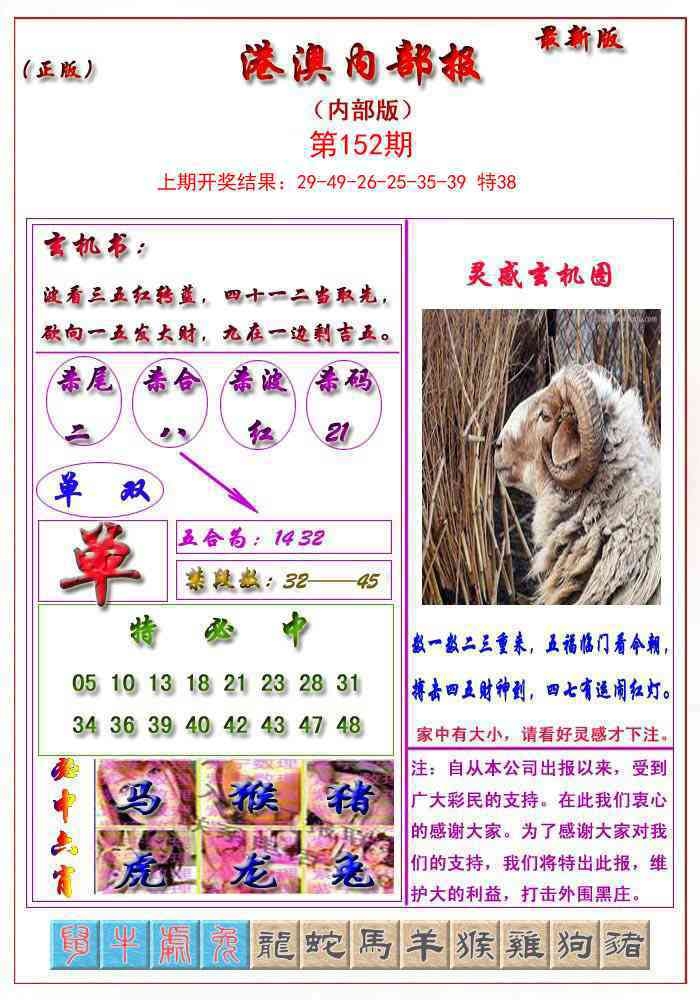 （正版）
港澳内部报
最新版
（内部版）
第152期
上期开奖结果：29-49-26-25-35-39 特38
玄机书：
波看三五红转蓝，四十一二当取先，
欲向一五发大财，九在一边剩吉五。
杀尾 杀合 杀波 杀码
二 八 红 21
单 双
单
五合为：14 32
禁段数：32——45
特 必 中
05 10 13 18 21 23 28 31
34 36 39 40 42 43 47 48
必中六肖
马 猴 猪
虎 龙 兔
灵感玄机图
数一数二三重来，五福临门看今朝，
搏击四五财神到，四七有运闹红灯。
家中有大小，请看好灵感才下注。
注：自从本公司出报以来，受到
广大彩民的支持。在此我们衷心
的感谢大家。为了感谢大家对我
们的支持，我们将特出此报，维
护大的利益，打击外围黑庄。
鼠 牛 虎 兔 龍 蛇 馬 羊 猴 雞 狗 豬